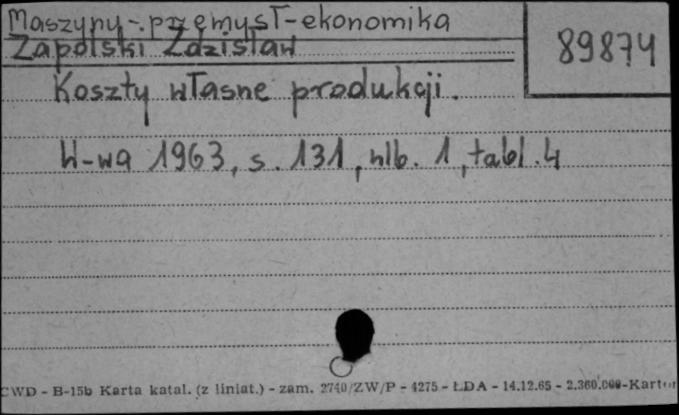 Maszyny - przemysł - ekonomika
Zapolski Zdzisław
89874
Koszty własne produkcji.
W-wa 1963, s. 131, nlb. 1, tabl. 4
CWD - B-15b Karta katal. (z liniat.) - zam. 2740/ZW/P - 4275 - ŁDA - 14.12.65 - 2.360.000 - Karton